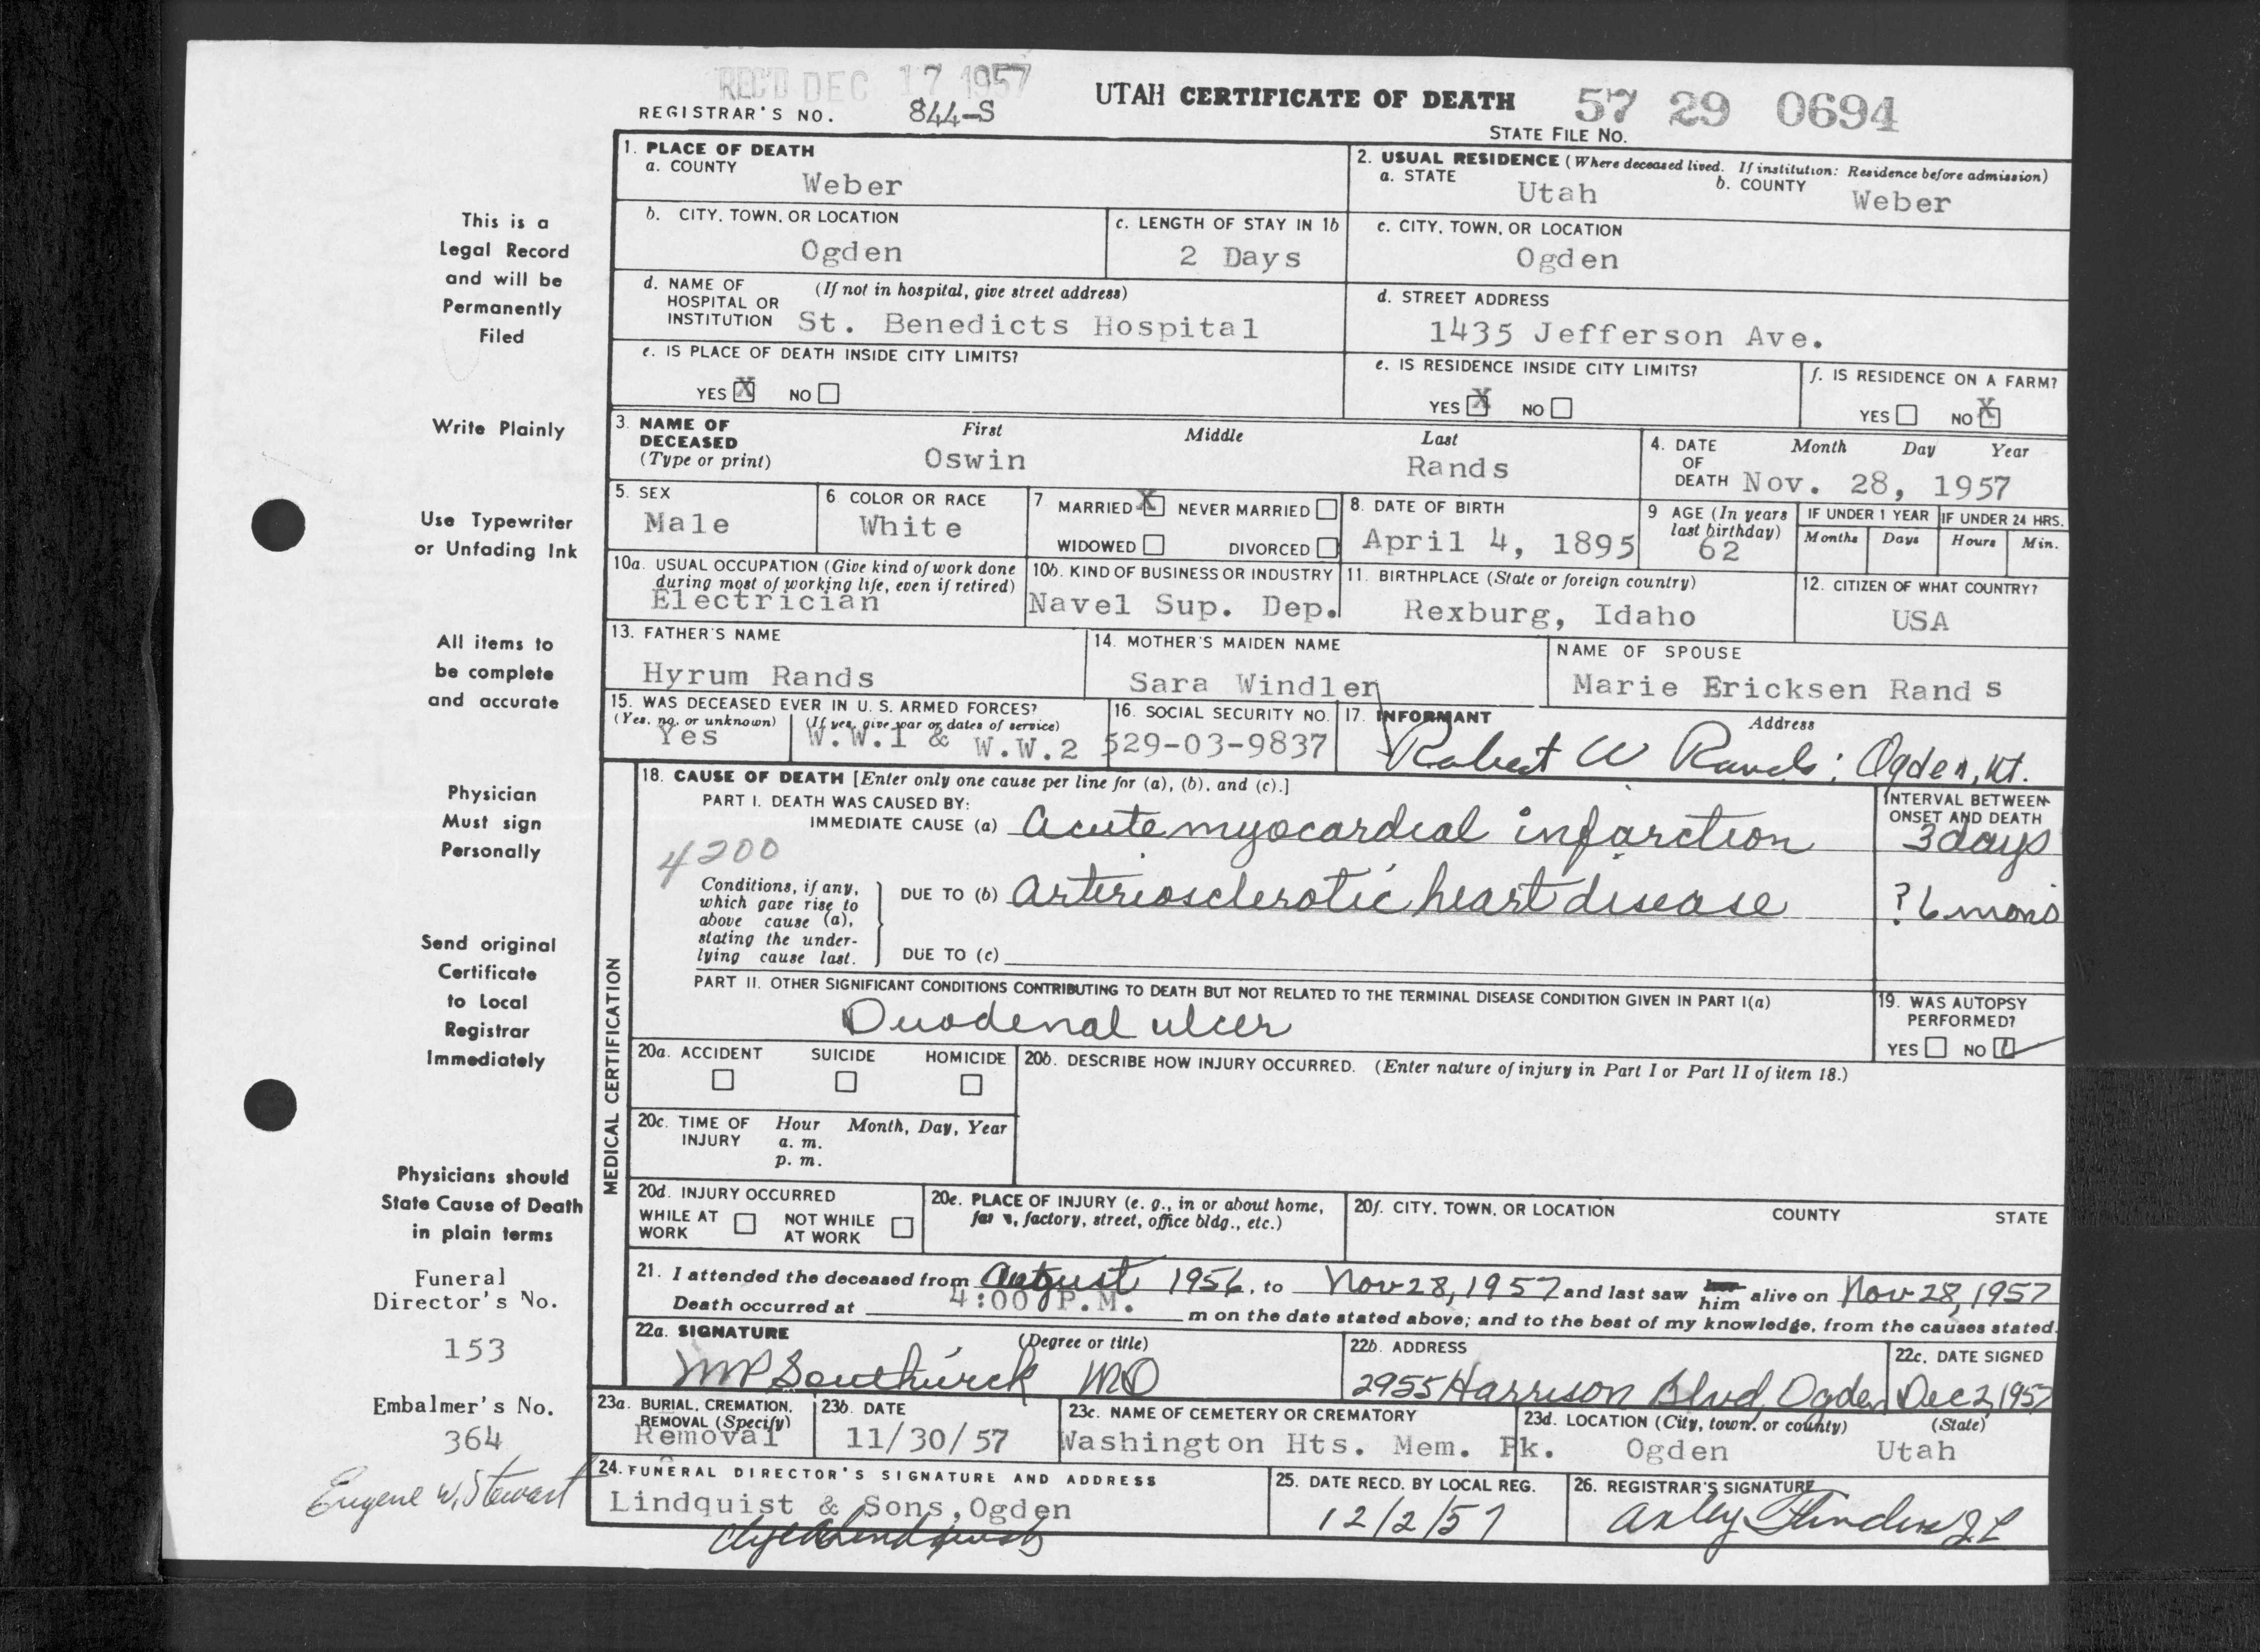 REC'D DEC 17 1957
UTAH CERTIFICATE OF DEATH 57 29 0694
REGISTRAR'S NO. 844-S
STATE FILE NO.
1. PLACE OF DEATH
a. COUNTY
Weber
2. USUAL RESIDENCE (Where deceased lived. If institution: Residence before admission)
a. STATE Utah b. COUNTY Weber
b. CITY, TOWN, OR LOCATION
Ogden
c. LENGTH OF STAY IN 1b
2 Days
c. CITY, TOWN, OR LOCATION
Ogden
d. NAME OF HOSPITAL OR INSTITUTION (If not in hospital, give street address)
St. Benedicts Hospital
d. STREET ADDRESS
1435 Jefferson Ave.
e. IS PLACE OF DEATH INSIDE CITY LIMITS?
YES X NO
e. IS RESIDENCE INSIDE CITY LIMITS?
YES X NO
f. IS RESIDENCE ON A FARM?
YES NO X
3. NAME OF DECEASED (Type or print)
First Middle Last
Oswin Rands
4. DATE OF DEATH Month Day Year
Nov. 28, 1957
5. SEX
Male
6. COLOR OR RACE
White
7 MARRIED X NEVER MARRIED
WIDOWED DIVORCED
8. DATE OF BIRTH
April 4, 1895
9 AGE (In years last birthday)
62
IF UNDER 1 YEAR
Months Days
IF UNDER 24 HRS.
Hours Min.
10a. USUAL OCCUPATION (Give kind of work done during most of working life, even if retired)
Electrician
10b. KIND OF BUSINESS OR INDUSTRY
Navel Sup. Dep.
11. BIRTHPLACE (State or foreign country)
Rexburg, Idaho
12. CITIZEN OF WHAT COUNTRY?
USA
13. FATHER'S NAME
Hyrum Rands
14. MOTHER'S MAIDEN NAME
Sara Windler
NAME OF SPOUSE
Marie Ericksen Rands
15. WAS DECEASED EVER IN U. S. ARMED FORCES?
(Yes, no, or unknown) (If yes, give war or dates of service)
Yes W.W.1 & W.W.2
16. SOCIAL SECURITY NO.
529-03-9837
17. INFORMANT Address
Robert W Rands: Ogden, Ut.
18. CAUSE OF DEATH [Enter only one cause per line for (a), (b), and (c).]
PART I. DEATH WAS CAUSED BY:
IMMEDIATE CAUSE (a) Acute myocardial infarction
INTERVAL BETWEEN ONSET AND DEATH
3 days
4200
Conditions, if any, which gave rise to above cause (a), stating the underlying cause last.
DUE TO (b) Arteriosclerotic heart disease
? 6 mons
DUE TO (c)
PART II. OTHER SIGNIFICANT CONDITIONS CONTRIBUTING TO DEATH BUT NOT RELATED TO THE TERMINAL DISEASE CONDITION GIVEN IN PART I(a)
Duodenal ulcer
19. WAS AUTOPSY PERFORMED?
YES NO
20a. ACCIDENT SUICIDE HOMICIDE
20b. DESCRIBE HOW INJURY OCCURRED. (Enter nature of injury in Part I or Part II of item 18.)
20c. TIME OF INJURY Hour Month, Day, Year
a. m.
p. m.
20d. INJURY OCCURRED
WHILE AT WORK NOT WHILE AT WORK
20e. PLACE OF INJURY (e. g., in or about home, farm, factory, street, office bldg., etc.)
20f. CITY, TOWN, OR LOCATION COUNTY STATE
21. I attended the deceased from August 1956, to Nov 28, 1957 and last saw him alive on Nov 28, 1957
Death occurred at 4:00 P.M. m on the date stated above; and to the best of my knowledge, from the causes stated.
22a. SIGNATURE (Degree or title)
MP Southwick MD
22b. ADDRESS
2955 Harrison Blvd, Ogden
22c. DATE SIGNED
Dec 2, 1957
23a. BURIAL, CREMATION, REMOVAL (Specify)
Removal
23b. DATE
11/30/57
23c. NAME OF CEMETERY OR CREMATORY
Washington Hts. Mem. Pk.
23d. LOCATION (City, town, or county) (State)
Ogden Utah
24. FUNERAL DIRECTOR'S SIGNATURE AND ADDRESS
Lindquist & Sons, Ogden
25. DATE RECD. BY LOCAL REG.
12/2/57
26. REGISTRAR'S SIGNATURE
MEDICAL CERTIFICATION
This is a
Legal Record
and will be
Permanently
Filed
Write Plainly
Use Typewriter
or Unfading Ink
All items to
be complete
and accurate
Physician
Must sign
Personally
Send original
Certificate
to Local
Registrar
Immediately
Physicians should
State Cause of Death
in plain terms
Funeral
Director's No.
153
Embalmer's No.
364
Eugene W. Stewart